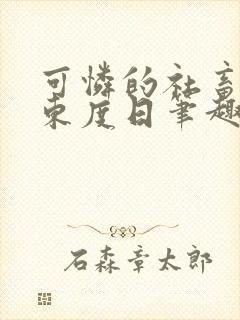 可憐的社畜
東度日筆趣
石森章太郎